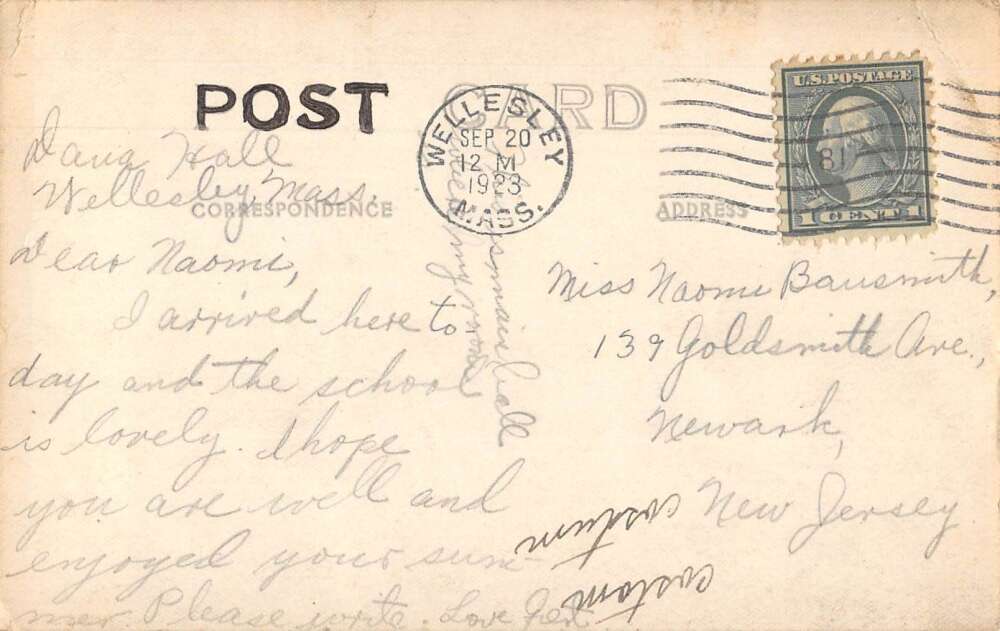 POST CARD
CORRESPONDENCE
ADDRESS
WELLESLEY
SEP 20
12 M
1923
MASS.
U.S. POSTAGE
1 CENT 1
Dana Hall
Wellesley, Mass.
Dear Naomi,
I arrived here to
day and the school
is lovely. I hope
you are well and
enjoyed your sum-
mer. Please write. Love
This is main hall
my room
Miss Naomi Bausmith,
139 Goldsmith Ave.,
Newark,
New Jersey
custom
custum